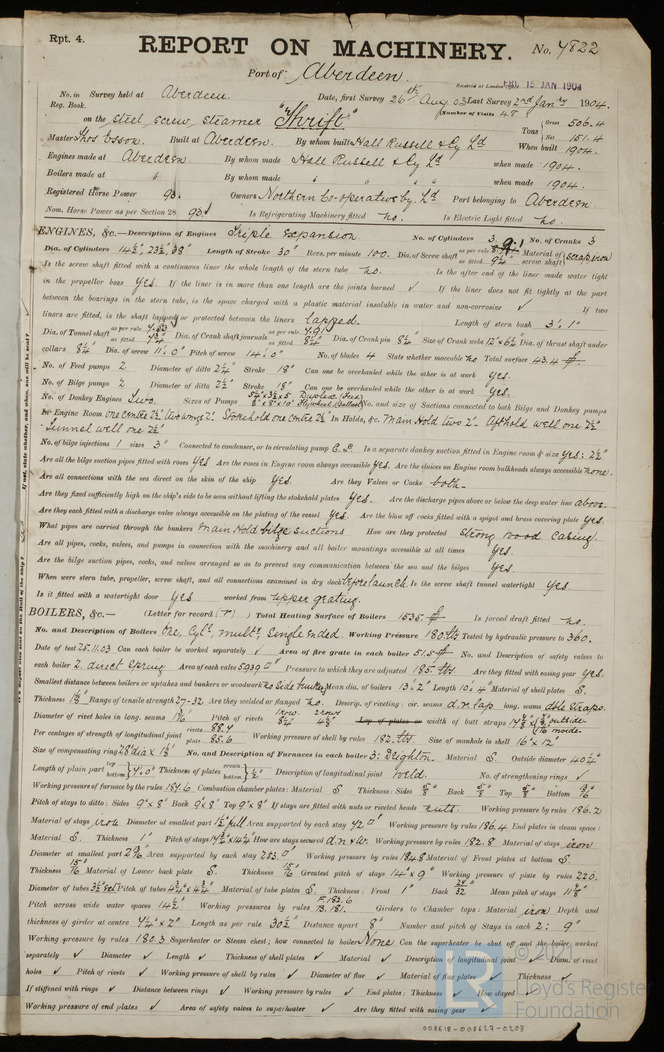 Rpt. 4.
REPORT ON MACHINERY.
No. 4822
Port of Aberdeen.
Received at London Office FRI. 15 JAN 1904
No. in Survey held at Aberdeen. Date, first Survey 26th Aug 03 Last Survey 2nd Jany 1904.
Reg. Book. (Number of Visits 48
on the steel screw steamer "Thrift" Tons { Gross 506.4
Net 151.4
Master Thos Esson. Built at Aberdeen. By whom built Hall Russell & Cy Ld When built 1904.
Engines made at Aberdeen. By whom made Hall Russell & Cy Ld when made 1904.
Boilers made at " By whom made " " " when made 1904.
Registered Horse Power 93. Owners Northern Co-operative Cy. Ld Port belonging to Aberdeen.
Nom. Horse Power as per Section 28 93 Is Refrigerating Machinery fitted no. Is Electric Light fitted no.
ENGINES, &c.—Description of Engines Triple expansion No. of Cylinders 3 No. of Cranks 3
Dia. of Cylinders 14½", 23½", 38" Length of Stroke 30" Revs. per minute 100. Dia. of Screw shaft as per rule 9.1 as fitted 9¼" Material of screw shaft scrap iron
Is the screw shaft fitted with a continuous liner the whole length of the stern tube no. Is the after end of the liner made water tight
in the propeller boss yes. If the liner is in more than one length are the joints burned ✓ If the liner does not fit tightly at the part
between the bearings in the stern tube, is the space charged with a plastic material insoluble in water and non-corrosive ✓ If two
liners are fitted, is the shaft lapped or protected between the liners lapped. Length of stern bush 3'. 1"
Dia. of Tunnel shaft as per rule 7.53 as fitted 7¾" Dia. of Crank shaft journals as per rule 7.91 as fitted 8¼" Dia. of Crank pin 8¼" Size of Crank webs 12"x6½" Dia. of thrust shaft under
collars 8¼" Dia. of screw 11'.0" Pitch of screw 14'.0" No. of blades 4 State whether moveable no Total surface 43.4 ft
No. of Feed pumps 2 Diameter of ditto 2¼" Stroke 18" Can one be overhauled while the other is at work yes.
No. of Bilge pumps 2 Diameter of ditto 2¾" Stroke 18" Can one be overhauled while the other is at work yes.
No. of Donkey Engines Two. Sizes of Pumps 5¼"x3½"x5" Duplex (Feed) 8"x8"x10" Flywheel (Ballast) No. and size of Suctions connected to both Bilge and Donkey pumps
In Engine Room one centre 2½" two wings 2". Stokehold one centre 2½" In Holds, &c. Main Hold two 2". Afthold well one 2½"
Tunnel well one 2½"
No. of bilge injections 1 sizes 3" Connected to condenser, or to circulating pump C.P. Is a separate donkey suction fitted in Engine room & size yes: 2½"
Are all the bilge suction pipes fitted with roses yes Are the roses in Engine room always accessible yes. Are the sluices on Engine room bulkheads always accessible none.
Are all connections with the sea direct on the skin of the ship yes. Are they Valves or Cocks both.
Are they fixed sufficiently high on the ship's side to be seen without lifting the stokehold plates yes. Are the discharge pipes above or below the deep water line above.
Are they each fitted with a discharge valve always accessible on the plating of the vessel yes. Are the blow off cocks fitted with a spigot and brass covering plate yes.
What pipes are carried through the bunkers Main Hold bilge suctions How are they protected strong wood casing
Are all pipes, cocks, valves, and pumps in connection with the machinery and all boiler mountings accessible at all times yes.
Are the bilge suction pipes, cocks, and valves arranged so as to prevent any communication between the sea and the bilges yes.
When were stern tube, propeller, screw shaft, and all connections examined in dry dock before launch Is the screw shaft tunnel watertight yes.
Is it fitted with a watertight door yes worked from upper grating.
BOILERS, &c.— (Letter for record (r) ) Total Heating Surface of Boilers 1535 ft Is forced draft fitted no.
No. and Description of Boilers One, Cyl., mult., Single Ended. Working Pressure 180 lbs Tested by hydraulic pressure to 360.
Date of test 25.11.03 Can each boiler be worked separately ✓ Area of fire grate in each boiler 51.5 ft No. and Description of safety valves to
each boiler 2. direct Spring Area of each valve 5.939 □" Pressure to which they are adjusted 185 lbs. Are they fitted with easing gear yes.
Smallest distance between boilers or uptakes and bunkers or woodwork no side bunkers Mean dia. of boilers 13'.2" Length 10'.4" Material of shell plates S.
Thickness 1⅛" Range of tensile strength 27-32 Are they welded or flanged no. Descrip. of riveting: cir. seams d.r. lap long. seams dble straps.
Diameter of rivet holes in long. seams 1 3/16" Pitch of rivets 1 row. 8¾" 2 rows 4⅜" Lap of plates or width of butt straps
Per centages of strength of longitudinal joint rivets 88.4 plate 85.6 Working pressure of shell by rules 182 lbs. Size of manhole in shell 16" x 12"
Size of compensating ring 28" dia x 1⅛" No. and Description of Furnaces in each boiler 3: Deighton. Material S Outside diameter 40¼"
Length of plain part top bottom 7'.0" Thickness of plates crown bottom ½" Description of longitudinal joint weld. No. of strengthening rings ✓
Working pressure of furnace by the rules 187.6 Combustion chamber plates: Material S Thickness: Sides ⅝" Back ⅝" Top ⅝" Bottom
Pitch of stays to ditto: Sides 9"x8" Back 9"x8" Top 9"x8" If stays are fitted with nuts or riveted heads nuts. Working pressure by rules 186.2
Material of stays iron Diameter at smallest part 1½" full Area supported by each stay 72 □" Working pressure by rules 186.4 End plates in steam space:
Material S. Thickness 1" Pitch of stays 17¾"x14¼" How are stays secured d.n & w. Working pressure by rules 182.8 Material of stays iron
Diameter at smallest part Area supported by each stay 253. □" Working pressure by rules 184.8 Material of Front plates at bottom S.
Thickness 15/16" Material of Lower back plate S. Thickness 15/16" Greatest pitch of stays 14"x9" Working pressure of plate by rules 220.
Diameter of tubes 3½" Pitch of tubes 4¾"x4¾" Material of tube plates S. Thickness: Front 1" Back Mean pitch of stays 11⅞"
Pitch across wide water spaces 14½" Working pressures by rules F. 182.6 B. 181. Girders to Chamber tops: Material iron Depth and
thickness of girder at centre 7¼"x2" Length as per rule 30½" Distance apart 8" Number and pitch of Stays in each 2: 9"
Working pressure by rules 180.3 Superheater or Steam chest; how connected to boiler None Can the superheater be shut off and the boiler worked
separately ✓ Diameter ✓ Length ✓ Thickness of shell plates ✓ Material ✓ Description of longitudinal joint ✓ Diam. of rivet
holes ✓ Pitch of rivets ✓ Working pressure of shell by rules ✓ Diameter of flue ✓ Material of flue plates ✓ Thickness ✓
If stiffened with rings ✓ Distance between rings ✓ Working pressure by rules ✓ End plates: Thickness ✓ How stayed ✓
Working pressure of end plates ✓ Area of safety valves to superheater ✓ Are they fitted with easing gear ✓
© 2021
LR
Lloyd's Register
Foundation
008618-008627-0203